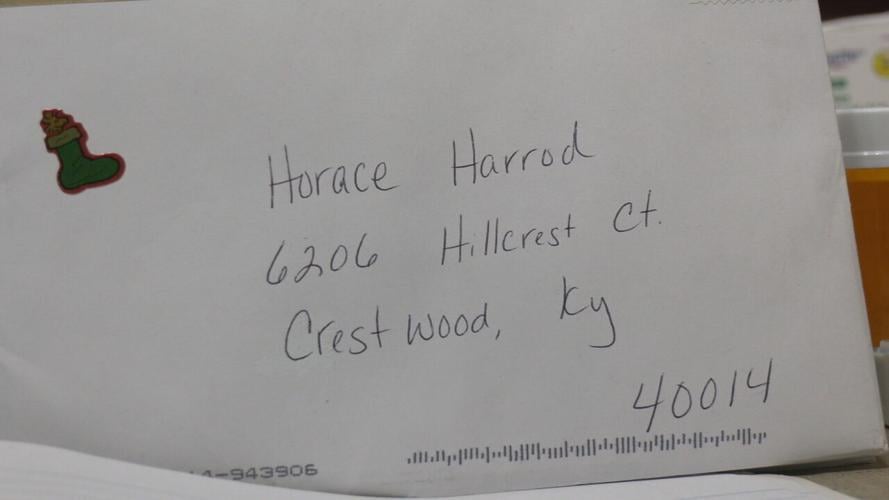 Horace Harrod
6206 Hillcrest Ct.
Crestwood, Ky
40014
4-943906